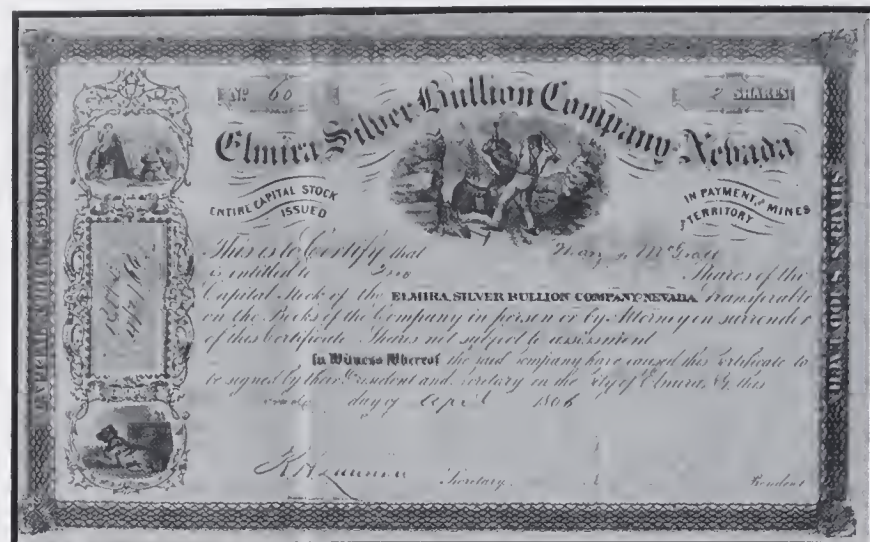 No 60
2 SHARES
Elmira Silver Bullion Company Nevada
ENTIRE CAPITAL STOCK
ISSUED
IN PAYMENT FOR MINES
TERRITORY
This is to Certify that Mc
is entitled to Two Shares of the
Capital Stock of the ELMIRA SILVER BULLION COMPANY NEVADA Transferable
on the Books of the Company in person or by Attorney on surrender
of this Certificate Shares not subject to assessment
In Witness Whereof the said company have caused this Certificate to
be signed by their President and Secretary in the City of Elmira, this
day of April 1866
Secretary
President
CAPITAL STOCK
SHARES $100 EACH